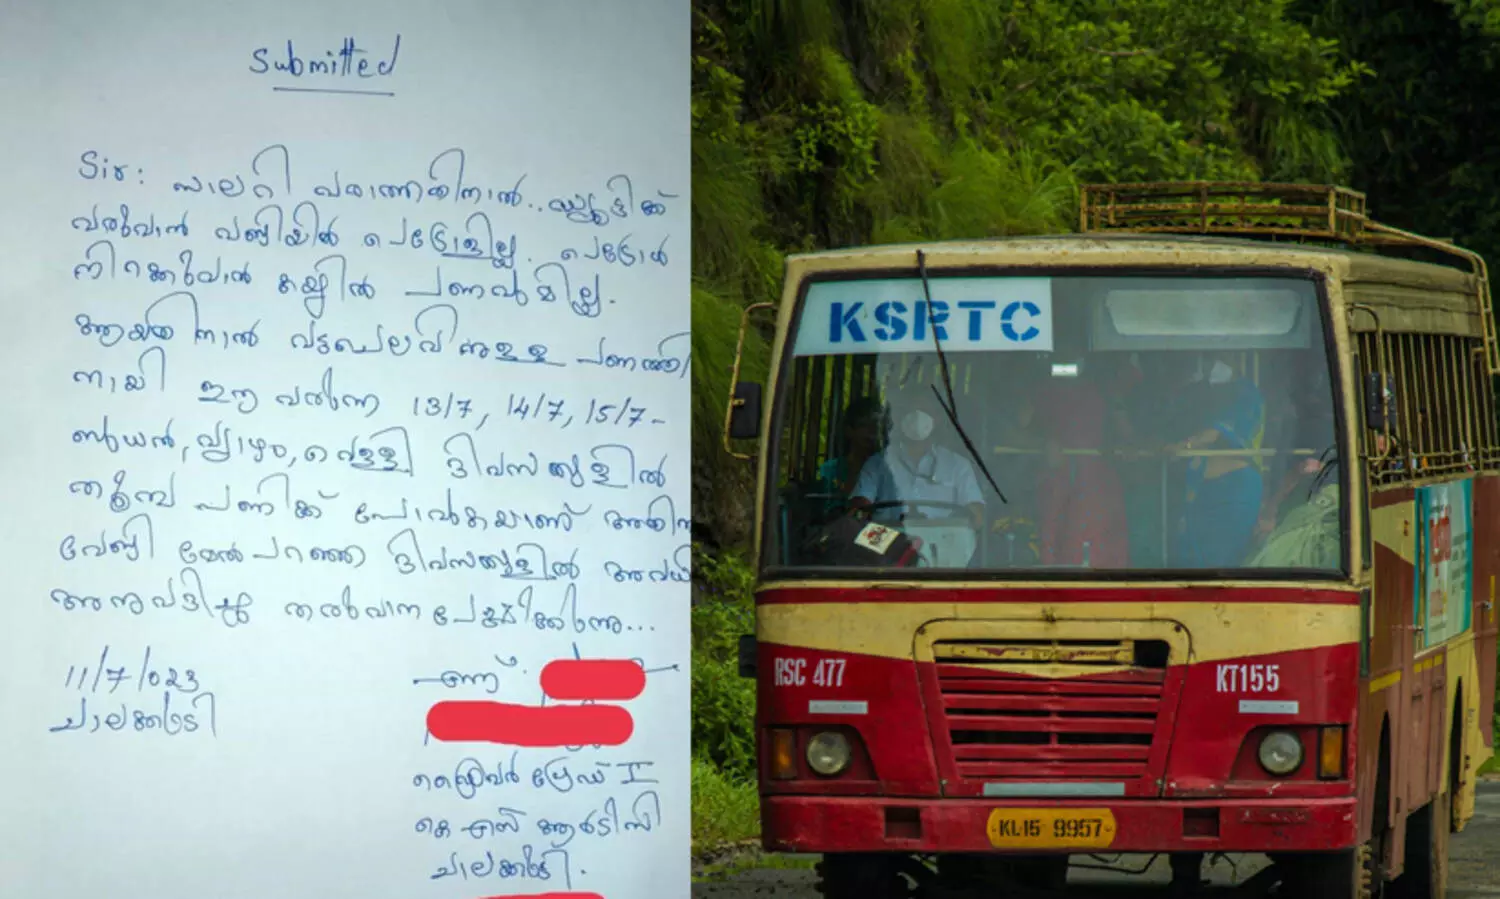 Submitted
Sir: സാലറി വരാത്തതിനാൽ.. ഡ്യൂട്ടിക്ക്
വരുവാൻ വണ്ടിയിൽ പെട്രോളില്ല. പെട്രോൾ
നിറക്കുവാൻ കയ്യിൽ പണവുമില്ല.
ആയതിനാൽ വട്ടചെലവിനുള്ള പണത്തി
നായി ഈ വരുന്ന 13/7, 14/7, 15/7-
ബുധൻ, വ്യാഴം, വെള്ളി ദിവസങ്ങളിൽ
തൂമ്പ പണിക്ക് പോവുകയാണ് അതിന
വേണ്ടി മേൽപറഞ്ഞ ദിവസങ്ങളിൽ അവധി
അനുവദിച്ചു തരുവാനപേക്ഷിക്കുന്നു...
11/7/023
ചാലക്കുടി
എന്ന്.
ഡ്രൈവർ ഗ്രേഡ് II
കെ എസ് ആർടിസി
ചാലക്കുടി.
KSRTC
RSC 477
KT155
KL-15 9957